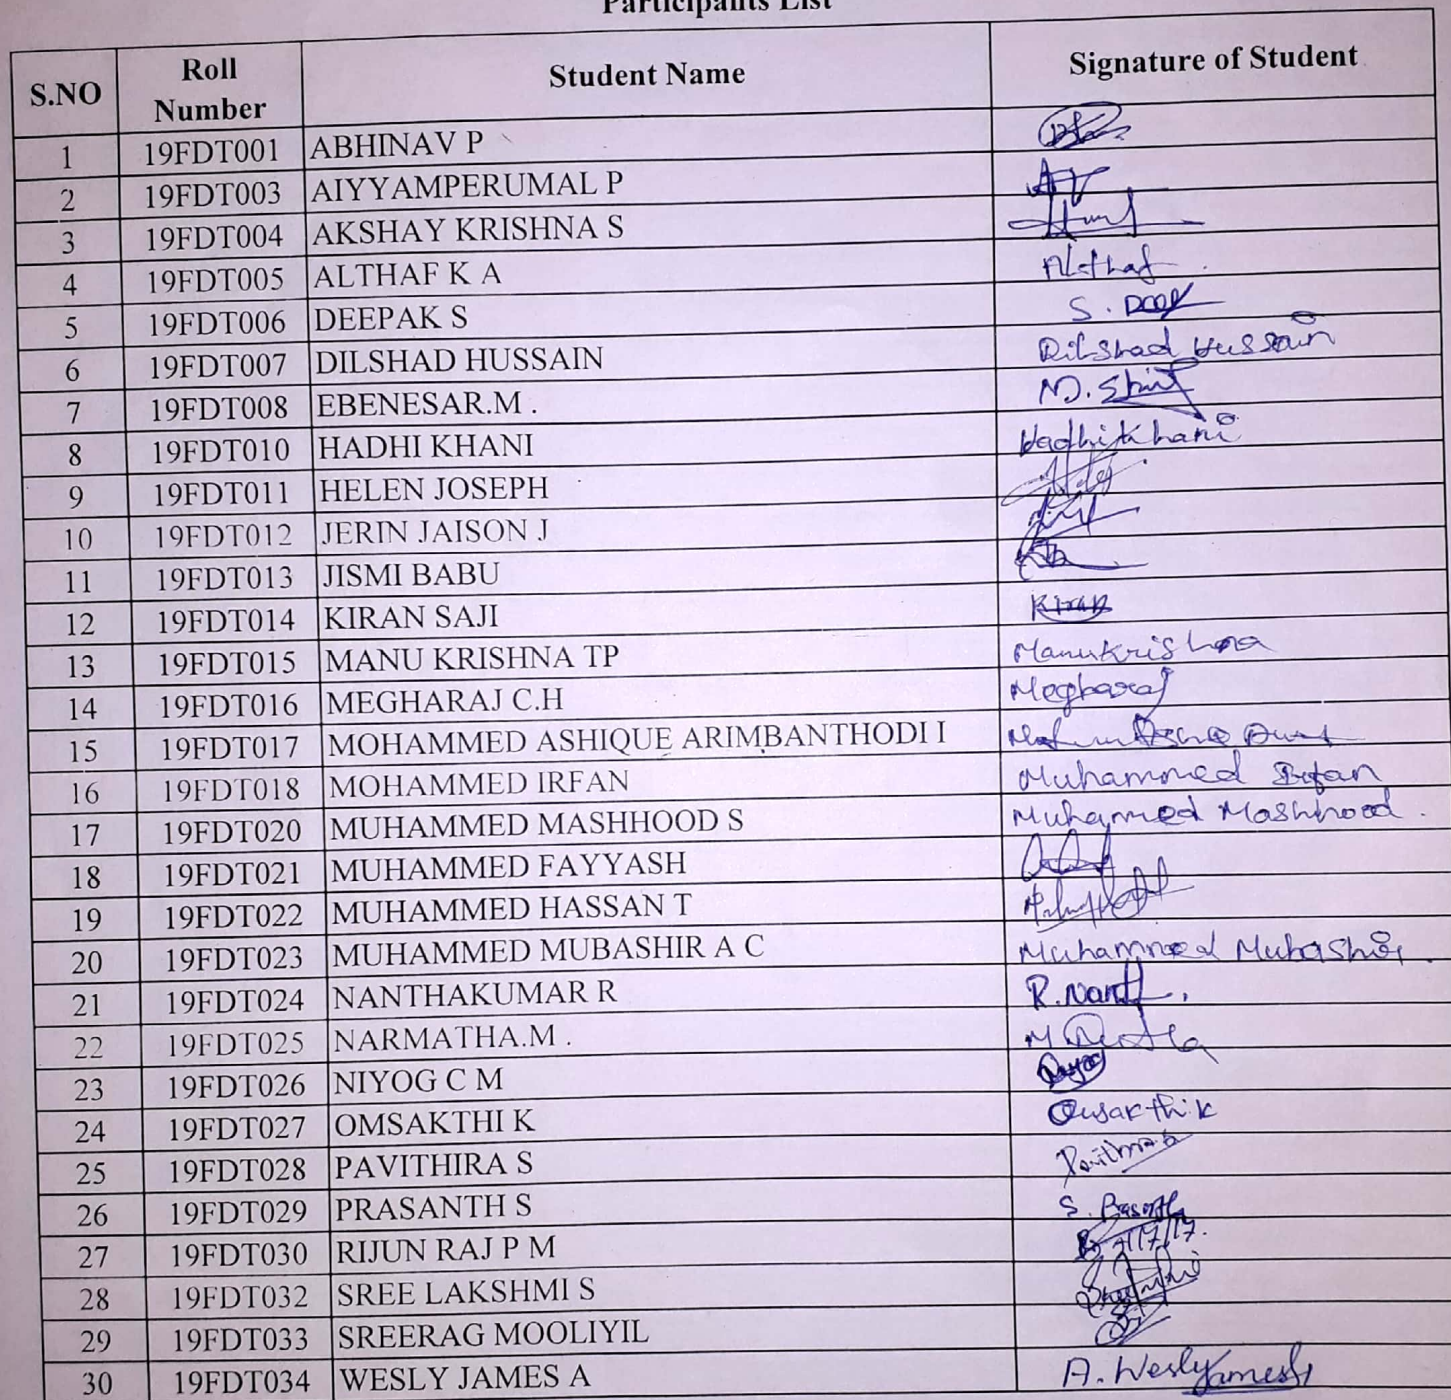 Participants List
S.NO Roll Number Student Name Signature of Student
1 19FDT001 ABHINAV P
2 19FDT003 AIYYAMPERUMAL P
3 19FDT004 AKSHAY KRISHNA S
4 19FDT005 ALTHAF K A Althaf
5 19FDT006 DEEPAK S S. Deep
6 19FDT007 DILSHAD HUSSAIN Dilshad Hussain
7 19FDT008 EBENESAR.M .
8 19FDT010 HADHI KHANI Hadhi Khani
9 19FDT011 HELEN JOSEPH
10 19FDT012 JERIN JAISON J
11 19FDT013 JISMI BABU
12 19FDT014 KIRAN SAJI Kiran
13 19FDT015 MANU KRISHNA TP Manukrishna
14 19FDT016 MEGHARAJ C.H Megharaj
15 19FDT017 MOHAMMED ASHIQUE ARIMBANTHODI I
16 19FDT018 MOHAMMED IRFAN Muhammed Irfan
17 19FDT020 MUHAMMED MASHHOOD S Muhammed Mashhood.
18 19FDT021 MUHAMMED FAYYASH
19 19FDT022 MUHAMMED HASSAN T
20 19FDT023 MUHAMMED MUBASHIR A C Muhammed Mubashir.
21 19FDT024 NANTHAKUMAR R R. Nanth.
22 19FDT025 NARMATHA.M .
23 19FDT026 NIYOG C M
24 19FDT027 OMSAKTHI K Omsakthi.K
25 19FDT028 PAVITHIRA S
26 19FDT029 PRASANTH S
27 19FDT030 RIJUN RAJ P M
28 19FDT032 SREE LAKSHMI S
29 19FDT033 SREERAG MOOLIYIL
30 19FDT034 WESLY JAMES A A. Wesly James